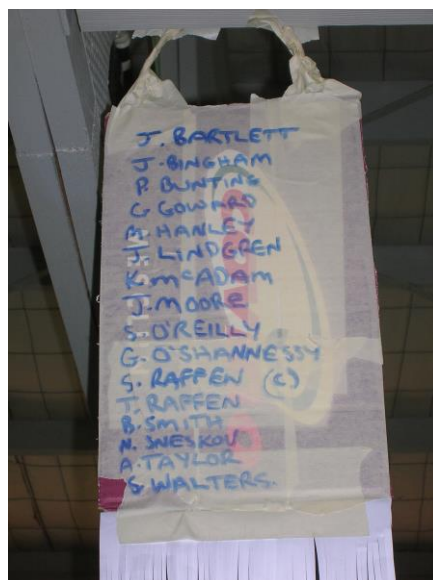 J. BARTLETT
J. BINGHAM
P. BUNTING
G GOWARD
HANLEY
LINDGREN
K. McADAM
J. MOORE
S. O'REILLY
G. O'SHANNESSY
S. RAFFEN (C)
T. RAFFEN
B. SMITH
N. SNESKOV
A. TAYLOR
S WALTERS.